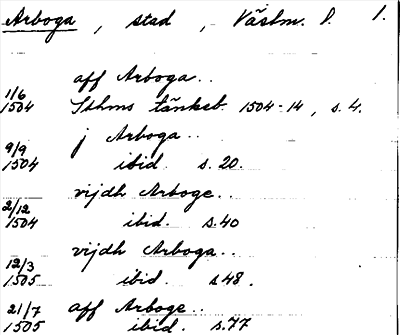 Arboga, stad, Västm. l. 1.
aff Arboga..
1/6 1504 Sthms tänkeb. 1504-14, s. 4.
j Arboga..
9/9 1504 ibid. s. 20.
vijdh Arboge..
2/12 1504 ibid. s. 40
vijdh Arboga..
12/3 1505 ibid. s. 48.
21/7 1505 aff Arboge..
ibid. s. 77